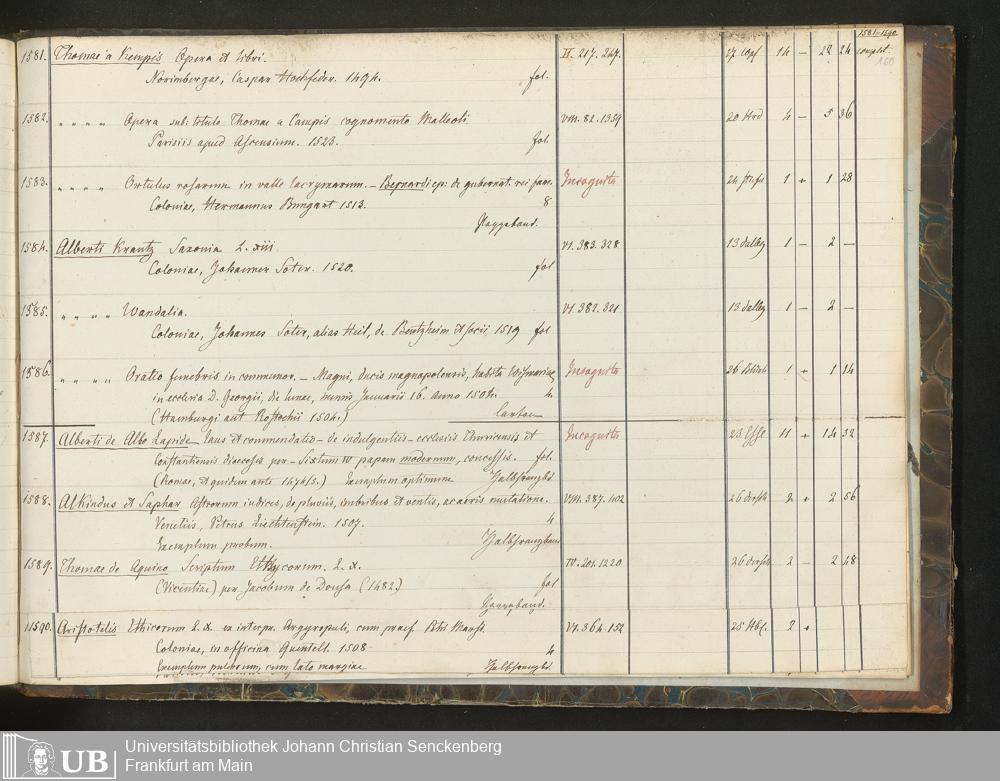 1581–1590
160
1581. Thomae a Kempis Opera et libri. II. 217. 247. 14 – 22 24 complet.
Norimbergae, Caspar Hochfeder. 1494. fol.
1582. " " " " Opera sub. titulo Thomae a Campis cognomento Malleoli VIII. 82. 1359 20 4 – 5 36
Parisiis apud Ascensium. 1523. fol.
1583. " " " " Ortulus rosarum in valle lacrymarum. – Bernardi ep: de gubernat. rei fam. Incognita 24 1 + 1 28
Coloniae, Hermannus Bungart 1513. 8
Pappband.
1584. Alberti Krantz Saxonia L. xiii VI. 383. 328 13 dalbg 1 – 2 –
Coloniae, Johannes Soter. 1520. fol
1585. " " " " Wandalia. VI. 382. 321 13 dalbg 1 – 2 –
Coloniae, Johannes Soter, alias Heil, de Bentzheim et socii 1519 fol
1586. " " " " Oratio funebris in commemor. – Magni, ducis magnopolensis, habita Wismariae, Incognita 26 1 + 1 14
in ecclesia D. Georgii, die lunae, mensis Januarii 16. Anno 1504. 4
(Hamburgi aut Rostochii 1504.) Carton
1587. Alberti de Albo Lapide laus et commendatio – de indulgentiis – ecclesiis Thuricensis et Incognita 23 11 + 14 32
Constantiensis dioecesis per – Sixtum IV papam modernum, concessis. fol.
(Romae, et quidem ante 1474/5.) Exemplum optimum Halbfranzbd
1588. Alkindus et Saphar Astrorum indices, de pluviis, imbribus et ventis, ac aeris mutatione. VIII. 387. 1102 26 2 + 2 56
Venetiis, Petrus Liechtenstein. 1507. 4
Exemplum probum. Halbfranzband
1589. Thomae de Aquino Scriptum Ethycorum. L. X. IV. 201. 1220 26 2 – 2 48
(Vicentiae) per Jacobum de Dousa (1482.) fol
Pappband.
11590. Aristotelis Ethicorum L. X. ex interpr. Argyropuli, cum praef. Petri VI. 364. 152 25 2 +
Coloniae, in officina Quentell. 1508 4
Exemplum pulcrum, cum lato margine Halbfranzbd
UB
Universitätsbibliothek Johann Christian Senckenberg
Frankfurt am Main